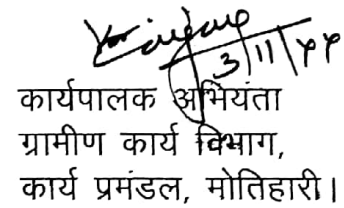 3/11/44
कार्यपालक अभियंता
ग्रामीण कार्य विभाग,
कार्य प्रमंडल, मोतिहारी।